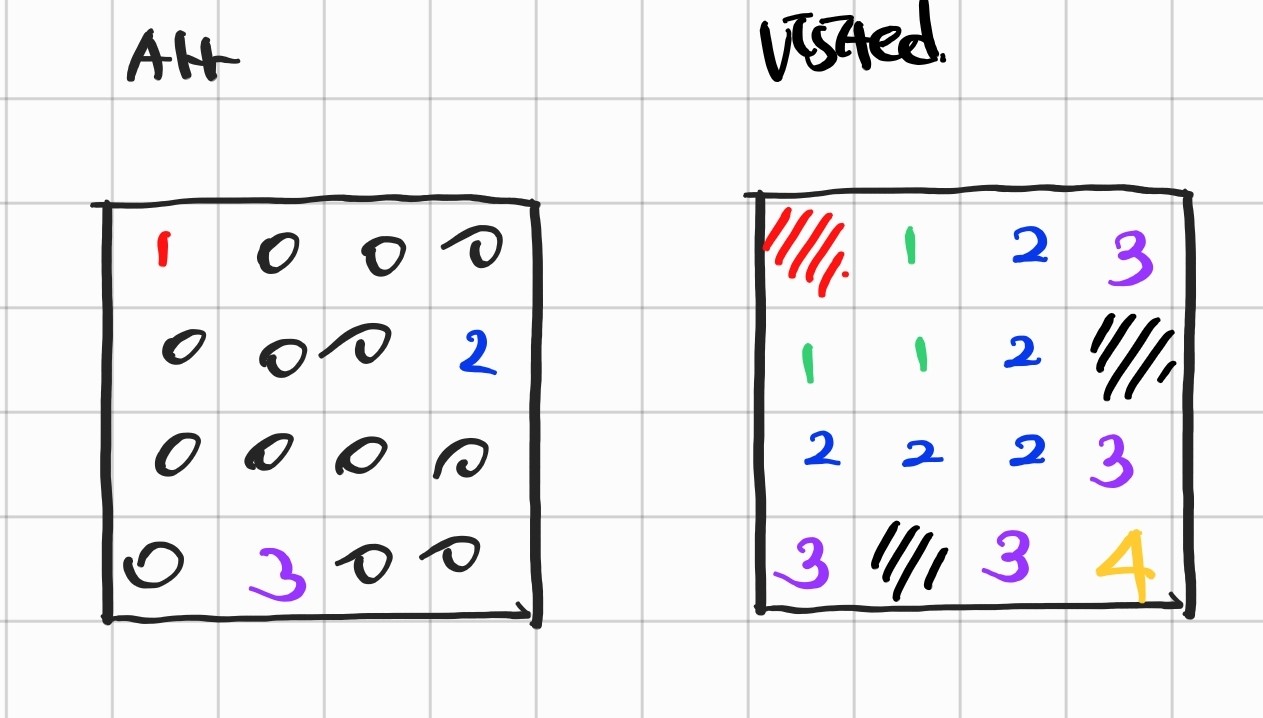 1 0 0 0
0 0 0 2
0 0 0 0
0 3 0 0
Visited.
1 2 3
1 1 2
2 2 2 3
3 3 4